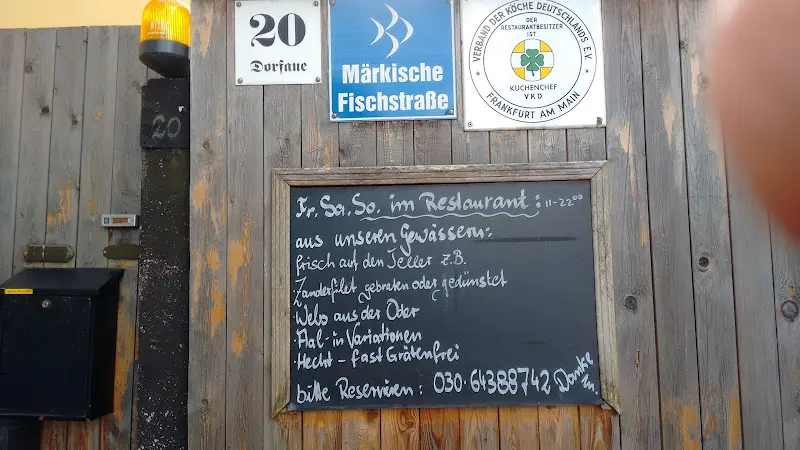 20
Dorfaue
Märkische
Fischstraße
VERBAND DER KÖCHE DEUTSCHLANDS E.V.
DER
RESTAURANTBESITZER
IST
KÜCHENCHEF
VKD
FRANKFURT AM MAIN
20
Fr. Sa. So. im Restaurant: 11-22⁰⁰
aus unseren Gewässern:
frisch auf den Teller z.B.
·Zanderfilet gebraten oder gedünstet
·Wels aus der Oder
·Aal- in Variationen
·Hecht - fast Grätenfrei
bitte Reservieren: 030-64388742 Danke